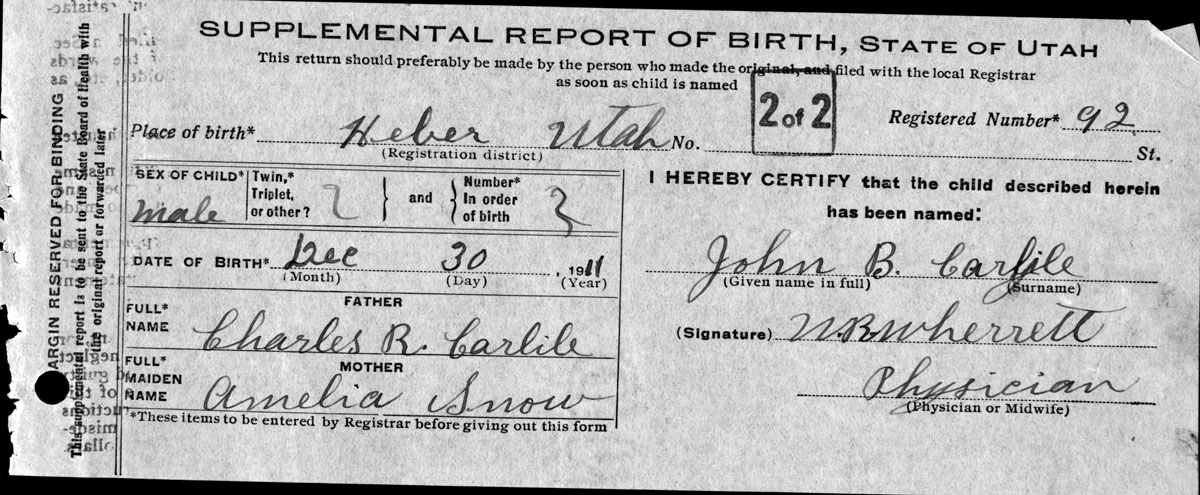 SUPPLEMENTAL REPORT OF BIRTH, STATE OF UTAH
This return should preferably be made by the person who made the original, and filed with the local Registrar
as soon as child is named
2 of 2
Registered Number* 92
Place of birth* Heber Utah No. St.
(Registration district)
SEX OF CHILD* male
Twin,* Triplet, or other? } and { Number* In order of birth
DATE OF BIRTH* Dec 30, 1911
(Month) (Day) (Year)
FATHER
FULL* NAME Charles R. Carlile
MOTHER
FULL* MAIDEN NAME Amelia Snow
*These items to be entered by Registrar before giving out this form
I HEREBY CERTIFY that the child described herein
has been named:
John B. Carlile
(Given name in full) (Surname)
(Signature) N.R. Wherrett
Physician
(Physician or Midwife)
ARGIN RESERVED FOR BINDING
This supplemental report is to be sent to the State Board of Health with
the original report or forwarded later